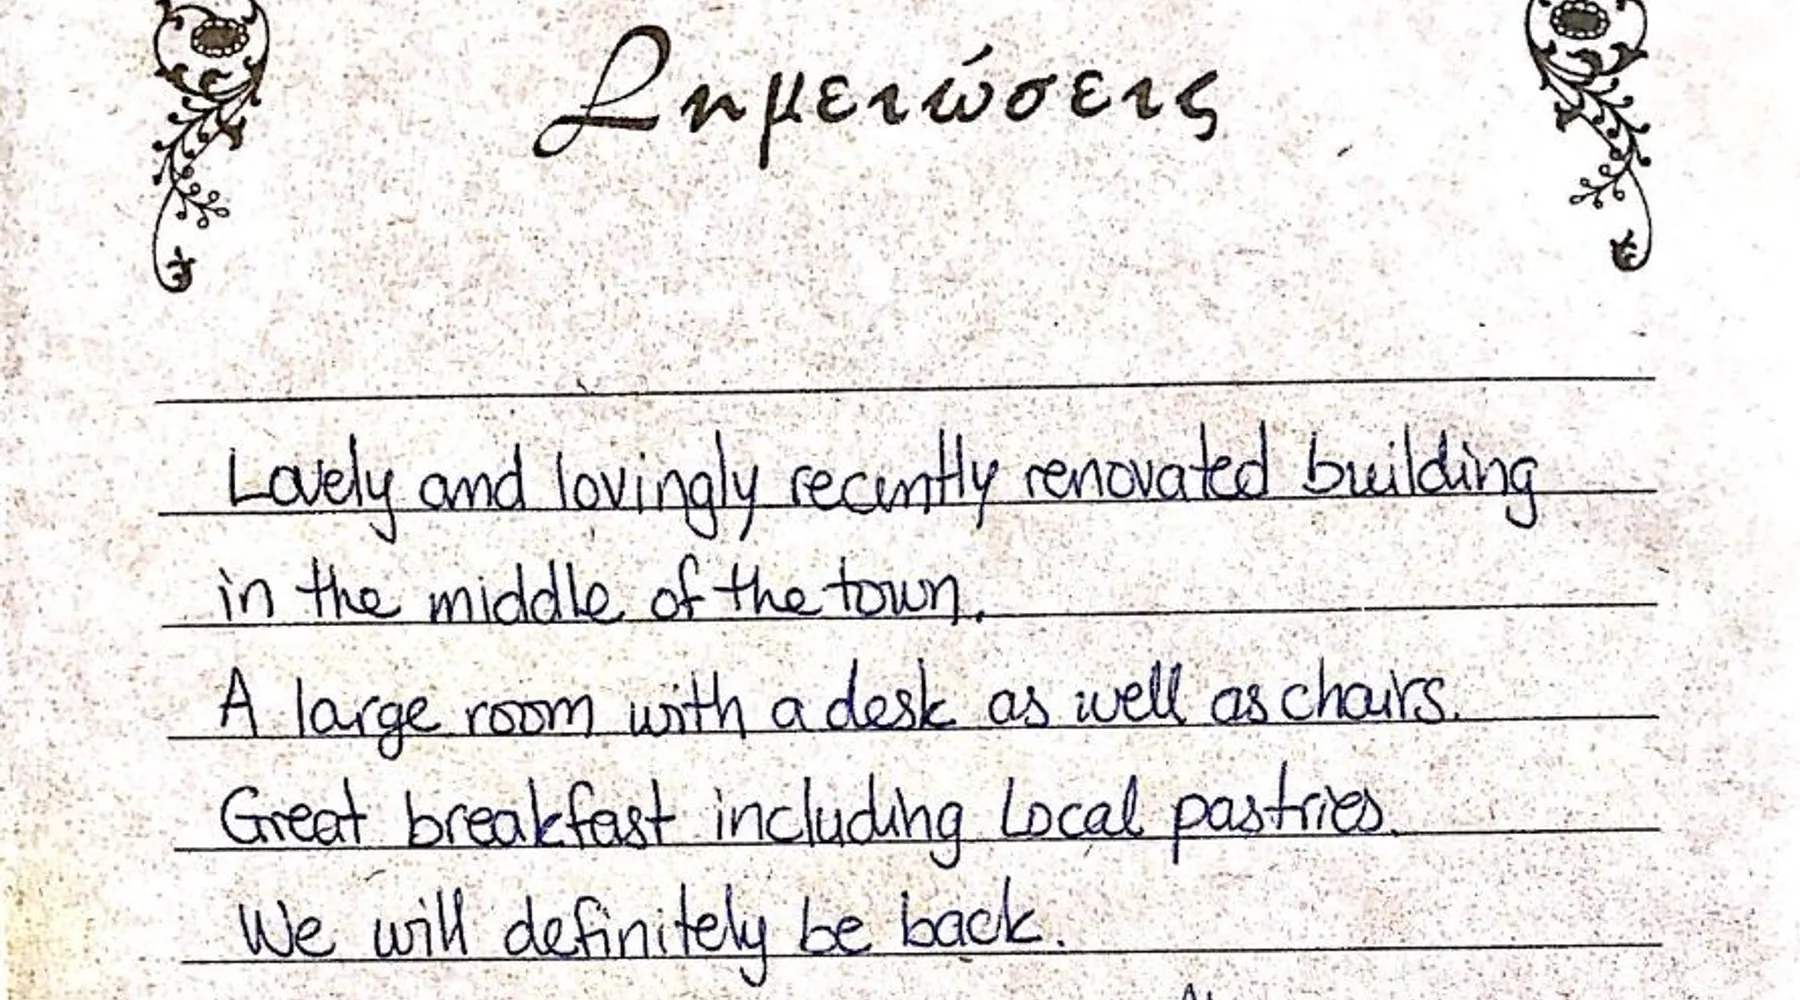 Σημειώσεις
Lovely and lovingly recently renovated building
in the middle of the town.
A large room with a desk as well as chairs.
Great breakfast including local pastries.
We will definitely be back.